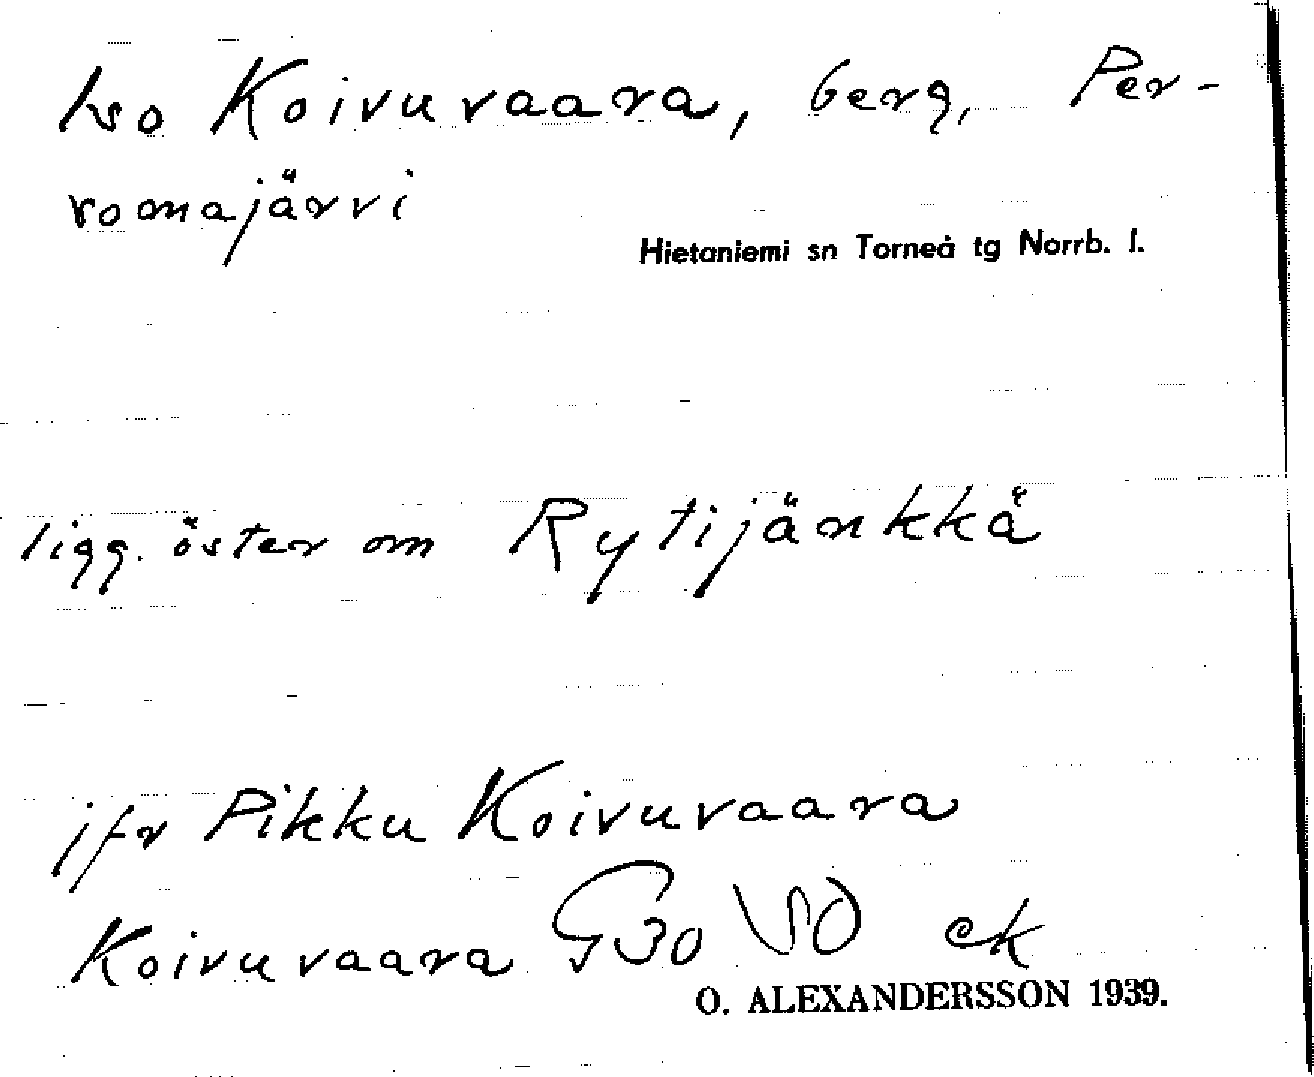 Iso Koivuvaara, berg, Per-
vomajärvi
Hietaniemi sn Torneå tg Norrb. l.
ligg. öster om Rytijänkkä
jfr Pikku Koivuvaara
Koivuvaara G30 VSO ek
O. ALEXANDERSSON 1939.